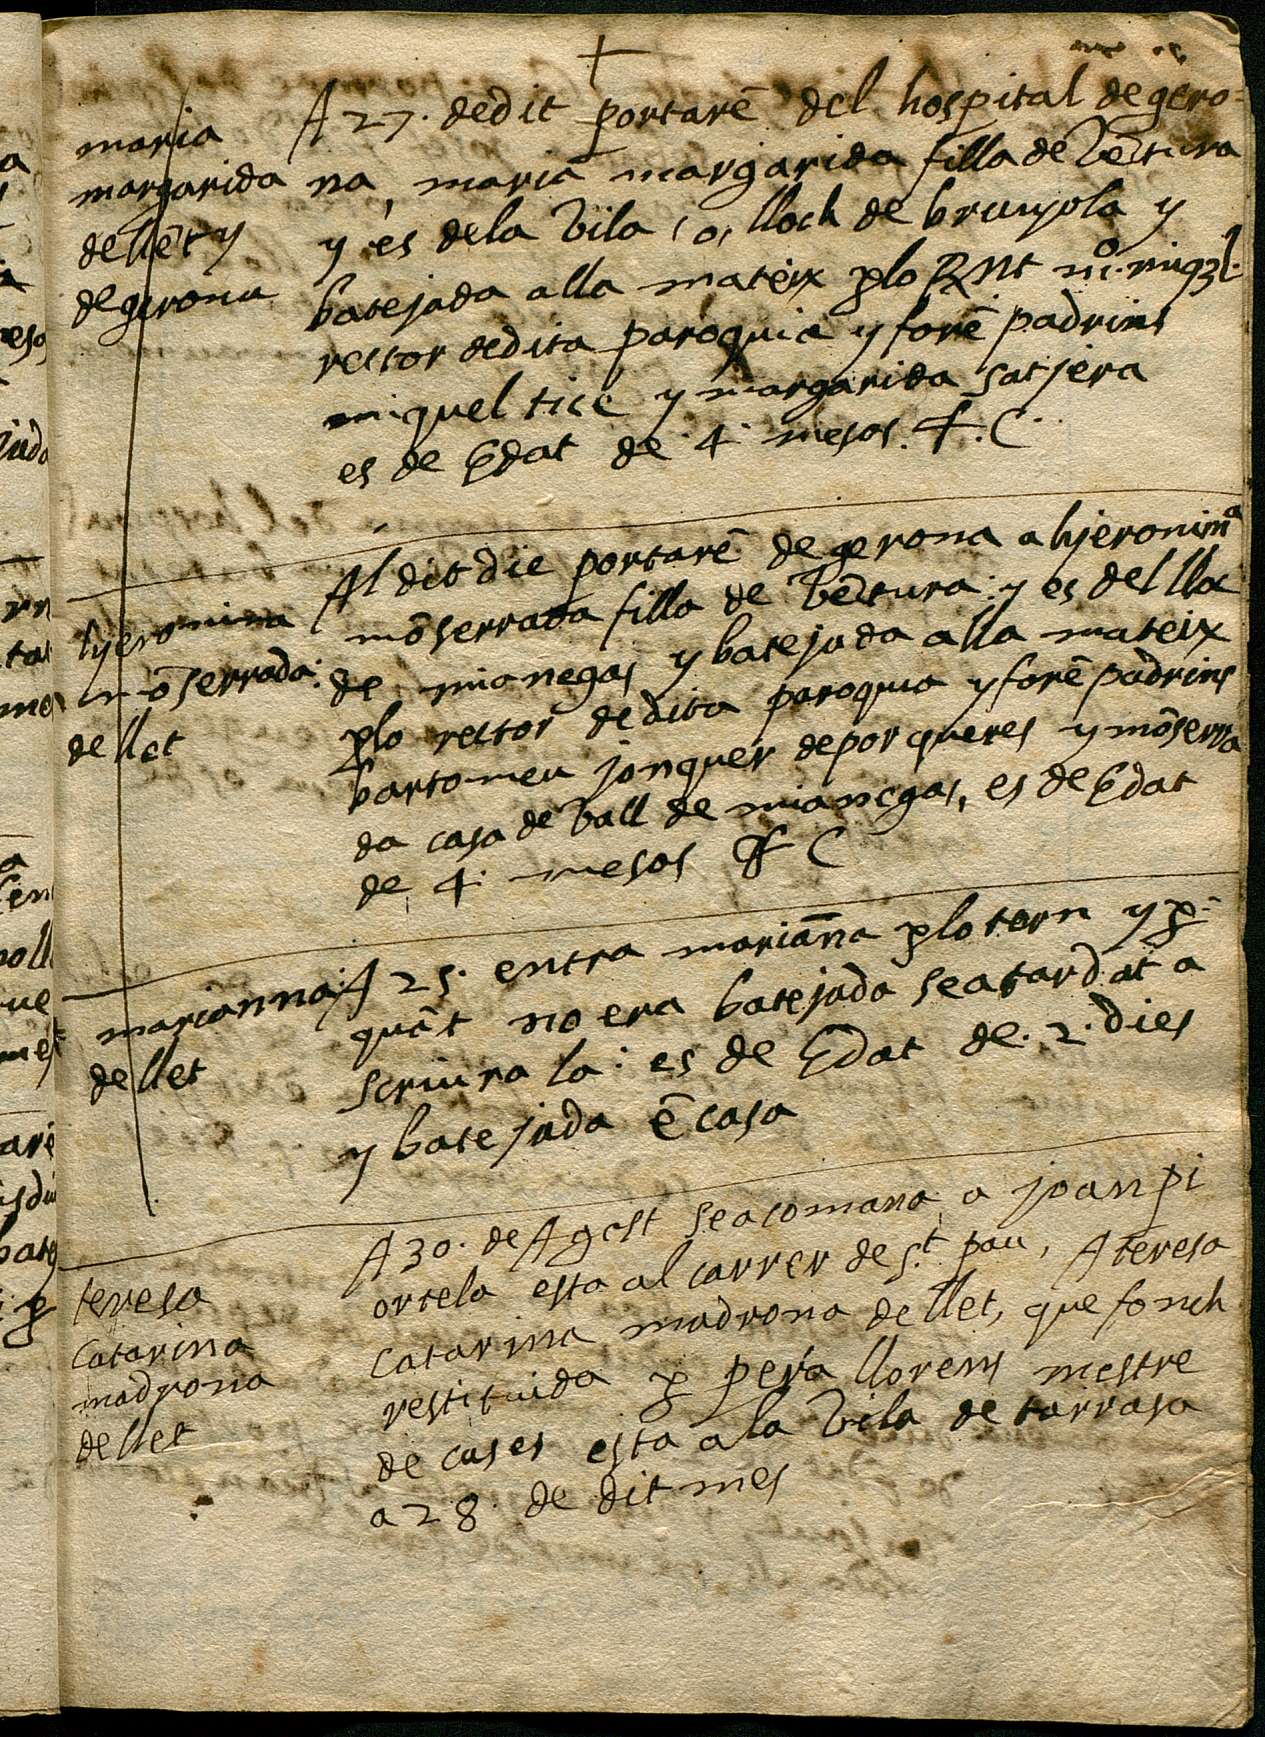 maria
margarida
de llēt y
de girona
A 27. de dit portarē del hospital de gero=
na, maria margarida filla de Vētura
y es de la Vila, o, lloch de brunyola y
batejada alla mateix plo Rnt mº. miq3l.
rector de dita paroquia y forē padrins
miquel tice y margarida satjera
es de Edat de .4. mesos. f. C.
hyeronima
mōserrada:
de llet
Al dit die portarē de gerona a hjeronimª
mōserrada filla de Vētura: y es del lloc
de mianegas y batejada alla mateix
plo rector de dita paroquia y forē padrins
bartomeu jonquer de porqueres y mōserra
da casa de Vall de mianegas, es de Edat
de 4. mesos ff C
marianna
de llet
A 25. entra mariāna plo torn y p=
quāt no era batejada sea tardat a
scriura la: es de Edat de .2. dies
y batejada ē casa
teresa
catarina
madrona
de llet
A 30. de Agost sea comana a joan pi
ortela esta al carrer de s.t pau, A teresa
catarina madrona de llet, que fonch
restituida p pera llorens mestre
de cases esta a la Vila de tarrasa
a 28. de dit mes